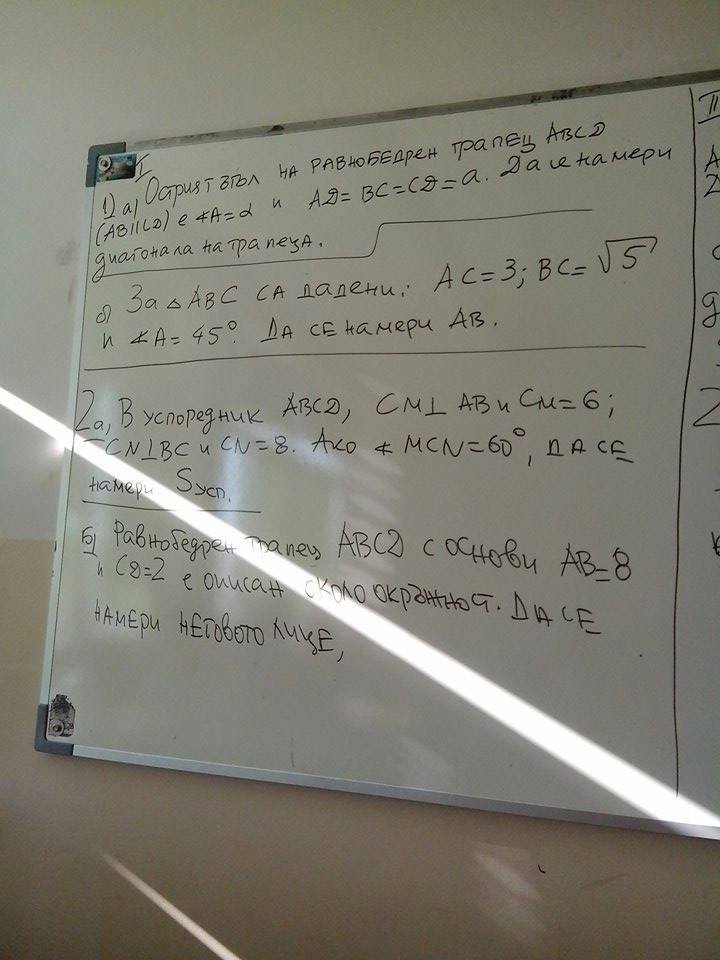 I
1) а) Острият ъгъл на равнобедрен трапец ABCD
(AB||CD) е ∢A=α и AD=BC=CD=a. Да се намери
диагонала на трапеца.
б) За △ABC са дадени: AC=3; BC=√5
и ∢A=45°. Да се намери AB.
2а, В успоредник ABCD, CM⊥AB и CM=6;
CN⊥BC и CN=8. Ако ∢MCN=60°, да се
намери Sусп.
Б) Равнобедрен трапец ABCD с основи AB=8
и CD=2 е описан около окръжност. Да се
намери неговото лице,
II
A
2